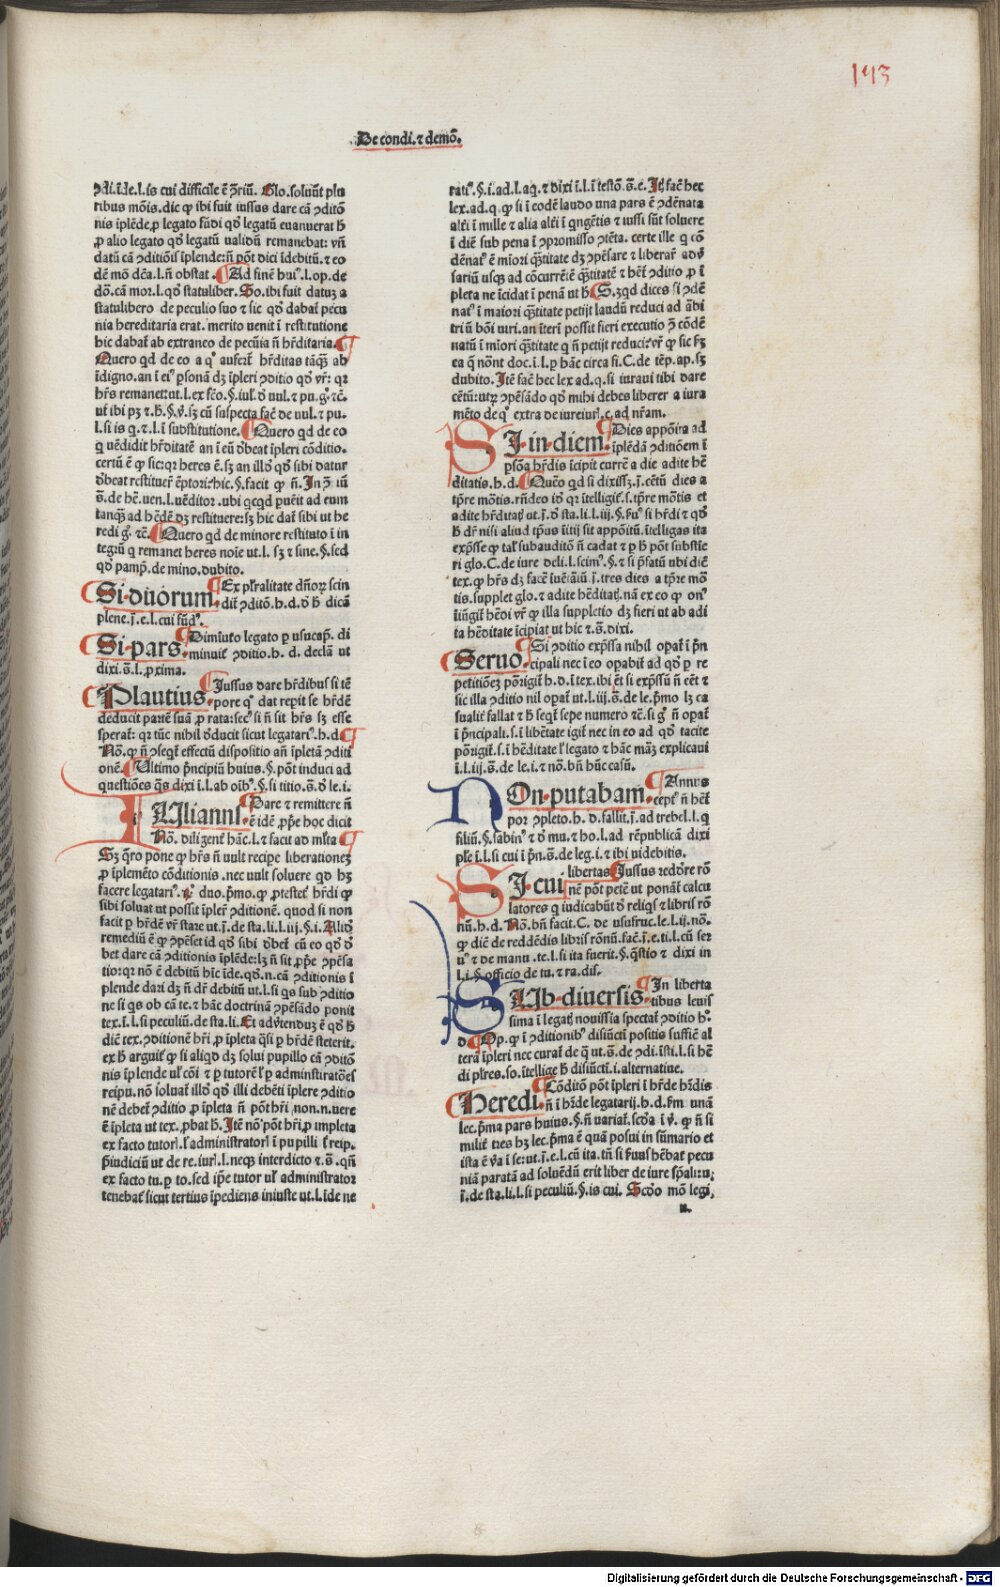 143
De condi. ⁊ demõ.
ꝯdi. ĩde. l. is cui difficile ẽ ꝯriũ. Glo. soluũt plu
ribus mõis. dic ꝙ ibi fuit iussus dare cã ꝯditõ
nis ĩplẽde, ꝓ legato fũdi qđ legatũ euanuerat ħ
ꝓ alio legato qđ legatũ ualidũ remanebat: vñ
datũ cã ꝯditiõis ĩplende: ñ põt dici ĩdebitũ. ⁊ eo
dẽ mõ dẽa. l. ñ obstat. Ad finẽ huiꝰ. l. op. de
dõ. cã mor. l. qđ statuliber. So. ibi fuit datuꝫ a
statulibero de peculio suo ⁊ sic qđ dabat̃ pecu
nia hereditaria erat. merito uenit ĩ restitutione
hic dabat̃ ab extraneo de pecũia ñ hr̃ditaria.
Quero qd de eo a qͦ aufert̃ hr̃ditas tãꝗ̃ ab
ĩdigno. an ĩ eiꝰ ꝑsonã dꝫ ĩpleri ꝯditio qđ vr̃: qꝛ
hr̃s remanet: ut. l. ex fc̃o. §. iul. đ uul. ⁊ pu. gͬ. ⁊c̃.
ut̃ ibi pꝫ ⁊ ħ. §. v̾. sꝫ cũ suspecta fac̃ de uul. ⁊ pu.
l. si is q. ⁊ l. ĩ substitutione. Quero qd de eo
q uẽdidit hr̃ditatẽ an ĩ eũ đbeat ĩpleri cõditio.
certũ ẽ ꝙ sic: qꝛ heres ẽ. sꝫ an illđ qđ sibi datur
đbeat restituer̃ ẽptori: hic. §. facit ꝙ ñ. In ꝯ iũ
s̃. de hẽ. uen. l. uẽditor. ubi qcqd ꝑuẽit ad eum
tanꝗ̃ ad hẽdẽ dꝫ restituere: sꝫ hic dat̃ sibi ut he
redi gͬ. ⁊c̃. Quero qd de minore restituto ĩ in
tegrũ q remanet heres noĩe ut. l. sꝫ ⁊ sine. §. sed
qđ pamp̃. de mino. dubito.
Si duorum. Ex pl̃ralitate dñoꝝ scin
dit̃ ꝯditõ. h. d. đ ħ dicã
plene. j̃. e. l. cui fũdꝰ.
Si pars. Diminuto legato ꝑ usucap̃. di
minuit̃ ꝯditio. h. d. declã ut
dixi. s̃. l. ꝓxima.
Plautius. Jussus dare hr̃dibus si tẽ
pore qͦ dat repit se hr̃dẽ
deducit partẽ suã ꝓ rata: secꝰ si ñ sit hr̃s sꝫ esse
sperat̃: qꝛ tũc nihil đducit sicut legatariꝰ. h. d.
Nõ. ꝙ ñ ꝯseqt̃ effectũ dispositio añ ĩpletã ꝯditi
onẽ. Ultimo p̃ncipiũ huius. §. põt induci ad
questiões q̃s dixi ĩ. l. ab oĩbꝰ. §. si titio. s̃. đ le. i.
IUlianꝰ. Dare ⁊ remittere ñ
ẽ idẽ ꝓp̃e hoc dicit
Nõ. diligent̃ hãc. l. ⁊ facit ad ml̃ta
Sꝫ q̃ro pone ꝙ hr̃s ñ uult recipe liberationeꝫ
ꝓ ĩplemẽto cõditionis. nec uult soluere qđ hꝫ
facere legatariꝰ. duo. p̃mo. ꝙ ꝓtestet̃ hr̃di ꝙ
sibi soluat ut possit ĩpler̃ ꝯditionẽ. quod si non
facit ꝑ hr̃dẽ vr̃ stare ut. j̃. de sta. li. l. iij. §. i. Aliđ
remediũ ẽ ꝙ ꝯpẽset id qđ sibi đbet̃ cũ eo qđ đ
bet dare cã ꝯditionis ĩplẽde: lꝫ ñ sit ꝓp̃e ꝯpẽsa
tio: qꝛ nõ ẽ debitũ hĩc ĩde. qđ. n. cã ꝯditionis ĩ
plende dari dꝫ ñ dr̃ debitũ ut. l. si qs sub ꝯditio
ne si qs ob cã te. ⁊ hãc doctrinã ꝯpẽsãdo ponit
tex. ĩ. l. si peculiũ. de sta. li. Et adv̾tenduꝫ ẽ qđ ħ
dic̃ tex. ꝯditionẽ hr̃i ꝓ ĩpleta q̃si ꝑ hr̃dẽ steterit.
ex ħ arguit̃ ꝙ si aliqd dꝫ solui pupillo cã ꝯditõ
nis ĩplende ul̃ cõi ⁊ ꝑ tutorẽ l̾ ꝑ adminstiratões
reipu. nõ soluat̃ illđ qđ illi debẽti ĩplere ꝯditio
nẽ debet̃ ꝯditio ꝓ ĩpleta ñ põt hr̃i. non. n. uere
ẽ ĩpleta ut tex. ꝓbat ħ. Itẽ nõ põt hr̃i ꝓ impleta
ex facto tutorꝭ. l̾ administratorꝭ ĩ pupilli l̾ reip.
p̃iudiciũ ut de re. iurꝭ. l. necꝗ interdicto ⁊ s̃. qñ
ex facto tu. ꝑ to. sed ip̃e tutor ul̾ administrator
tenebat̃ sicut tertius ĩpediens iniuste ut. l. ĩde ne
ratiꝰ. §. i. ad. l. aq. ⁊ dixi ĩ. l. ĩ testõ. s̃. e. Itẽ fac̃ hec
lex. ad. q. ꝙ si ĩ eodẽ laudo una pars ẽ ꝯdẽnata
alt̃i ĩ mille ⁊ alia alt̃i ĩ qngẽtis ⁊ iussi sũt soluere
ĩ diẽ sub pena ĩ ꝯpromisso ꝯtẽta. certe ille q cõ
dẽnatꝰ ẽ miori q̃titate dꝫ ꝯpẽsare ⁊ liberar̃ adv̾
sariũ usꝗ ad cõcurrẽtẽ q̃titatẽ ⁊ hẽt̃ ꝯditio ꝓ ĩ
pleta ne ĩcidat ĩ penã ut ħ. S. ꝫqd dices si ꝯdẽ
natꝰ ĩ maiori q̃titate petijt laudũ reduci ad ãbi
triũ bõi uiri. an ĩterĩ possit fieri executio ꝯ cõdẽ
natũ ĩ miori q̃titate q ñ petijt reduci: vr̃ ꝙ sic ꝑ
ea q̃ nõnt doc. ĩ. l. ꝑ hãc circa fi. C. de tẽp. ap. sꝫ
dubito. Itẽ fac̃ hec lex ad. q. si iuraui tibi dare
cẽtũ: utꝝ ꝯpẽsãdo qđ mihi debes liberer a iura
mẽto de qͦ extra de iureiurꝭ. c. ad nr̃am.
SI in diem. Dies appõita ad
ĩplẽdã ꝯditiõem ĩ
ꝑsõa hr̃dis ĩcipit currẽ a die adite hẽ
ditatis. h. d. Quẽo qd si dixissꝫ. j̃. cẽtũ dies a
tp̃re mõtis. rñdeo iđ qꝛ ĩtelligit̃. s. tp̃re mõtis et
adite hr̃ditatꝭ ut. j̃. đ sta. li. l. iij. §. l̾uꝰ si hr̃di ⁊ qđ
ħ dr̃ nisi aliud tp̃us ĩitij sit appõitũ. ĩtelligas ita
exp̃sse ꝙ tal̾ subauditõ ñ cadat ⁊ ꝑ ħ põt substie
ri glo. C. de iure deli. l. scimꝰ. §. ⁊ si p̃fatũ ubi dic̃
tex. ꝙ hr̃s dꝫ facẽ ĩuẽtãiũ. j̃. tres dies a tp̃re mõ
tis. supplet glo. ⁊ adite hẽditatꝭ. nã ex eo ꝙ onꝰ
ĩiũgit̃ hẽdi vr̃ ꝙ illa suppletio dꝫ fieri ut ab adi
ta hẽditate ĩcipiat ut hic ⁊. s̃. dixi.
Seruo. Si ꝯditio exp̃ssa nihil opat̃ ĩ p̃n
cipali nec ĩ eo opabit̃ ad qđ ꝑ re
petitiõeꝫ põrigit̃ h. d. ĩ tex. ibi ẽt si exp̃ssũ ñ eẽt ⁊
sic illa ꝯditio nil opat̃ ut. l. iij. s̃. de le. p̃mo lꝫ ca
sualit̃ fallat ⁊ ħ seqt̃ sepe numero ⁊c̃. si gͬ ñ opat̃
ĩ p̃ncipali. s. ĩ libẽtate igit̃ nec in eo ad qđ tacite
põrigit̃. s. ĩ hẽditate l̾ legato ⁊ hãc mãꝫ explicaui
ĩ. l. iij. s̃. de le. i. ⁊ nõ. bñ hũc casũ.
NOn putabam. Annus
ceptꝰ ñ hẽt̃
por ꝯpleto. h. d. fallit. j̃. ad trebel. l. q
filiũ. §. sabinꝰ ⁊ đ mu. ⁊ ho. l. ad rẽpublicã dixi
pl̃e ĩ. l. si cui ĩ p̃n. s̃. de leg. i. ⁊ ibi uidebitis.
SI cui libertas Jussus reddere rõ
nẽ põt petẽ ut ponãt̃ calcu
latores q iudicabũt đ reliqs ⁊ libris rõ
nũ. h. d. Nõ. bñ facit. C. de usufruc. le. l. ij. nõ.
ꝙ dic̃ de reddẽdis libris rõnũ. fac̃. j̃. e. ti. l. cũ ser
uꝰ ⁊ de manu. te. l. si ita fuerit. §. q̃stio ⁊ dixi in
l. i. §. officio de tu. ⁊ ra. dis.
SUb diuersis. In liberta
tibus leuis
sima ĩ legatꝭ nouissia spectat̃ ꝯditio hͦ.
d. Op. ꝙ ĩ ꝯditionibꝰ disiũct̃ positis suffic̃ al
terã ĩpleri nec curat̃ de q̃ ut. s̃. de ꝯdi. ĩsti. l. si hẽ
di pl̃res. so. ĩtellige ħ disiũct̃. i. alternatiue.
Heredi. Cõditõ põt ĩpleri ĩ hr̃de hr̃dis
ñ ĩ hr̃de legatarij. h. d. s̾m unã
lec. p̃ma pars huius. §. ñ uariat̃. scđa ĩ v̾. ꝙ ñ si
milit̃ tres hꝫ lec. p̃ma ẽ quã posui in sũmario et
ista ẽ v̾a ĩ se: ut. j̃. e. l. cũ ita. tñ si l̾uus hẽbat pecu
niã paratã ad soluẽdũ erit liber de iure sp̃ali: ut
j̃. de sta. li. l. si peculiũ. §. is cui. Scđo mõ legi,
u.
Digitalisierung gefördert durch die Deutsche Forschungsgemeinschaft - DFG